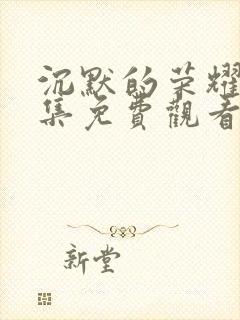 沉默的荣耀
集免費觀看
新堂